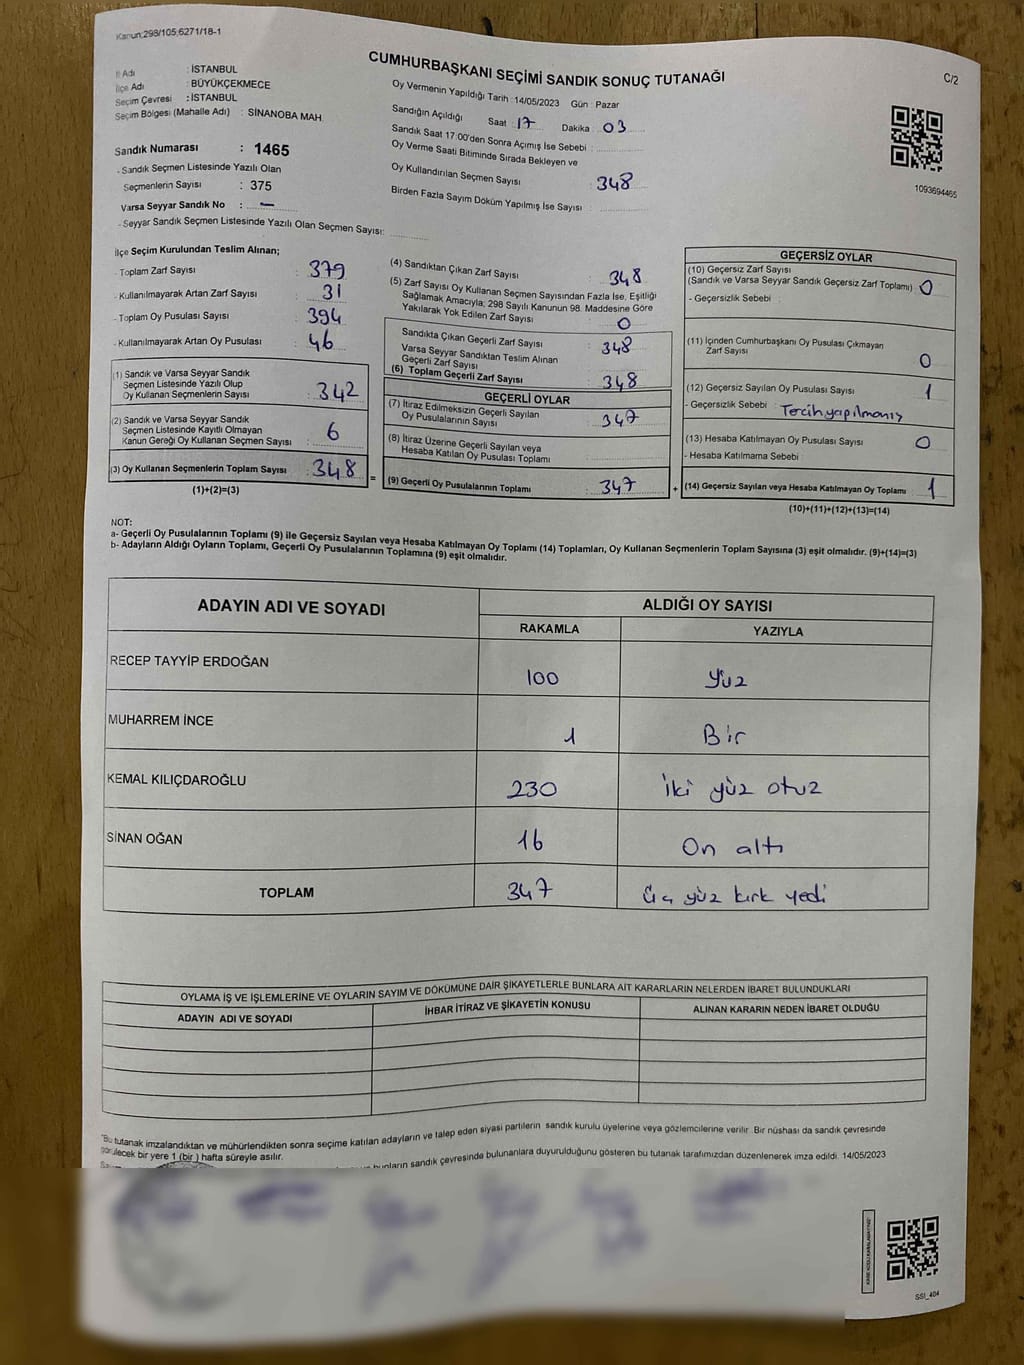 Kanun:298/105;6271/18-1
CUMHURBAŞKANI SEÇİMİ SANDIK SONUÇ TUTANAĞI
C/2
İl Adı : İSTANBUL
İlçe Adı : BÜYÜKÇEKMECE
Seçim Çevresi : İSTANBUL
Seçim Bölgesi (Mahalle Adı) : SİNANOBA MAH.
Sandık Numarası : 1465
- Sandık Seçmen Listesinde Yazılı Olan
Seçmenlerin Sayısı : 375
Varsa Seyyar Sandık No : —
- Seyyar Sandık Seçmen Listesinde Yazılı Olan Seçmen Sayısı:
Oy Vermenin Yapıldığı Tarih : 14/05/2023 Gün : Pazar
Sandığın Açıldığı Saat : 17 Dakika : 03
Sandık Saat 17:00'den Sonra Açımış İse Sebebi :
Oy Verme Saati Bitiminde Sırada Bekleyen ve
Oy Kullandırılan Seçmen Sayısı : 348
Birden Fazla Sayım Döküm Yapılmış İse Sayısı :
1093694465
İlçe Seçim Kurulundan Teslim Alınan;
- Toplam Zarf Sayısı : 379
- Kullanılmayarak Artan Zarf Sayısı : 31
- Toplam Oy Pusulası Sayısı : 394
- Kullanılmayarak Artan Oy Pusulası : 46
(1) Sandık ve Varsa Seyyar Sandık
Seçmen Listesinde Yazılı Olup
Oy Kullanan Seçmenlerin Sayısı : 342
(2) Sandık ve Varsa Seyyar Sandık
Seçmen Listesinde Kayıtlı Olmayan
Kanun Gereği Oy Kullanan Seçmen Sayısı : 6
(3) Oy Kullanan Seçmenlerin Toplam Sayısı : 348 =
(1)+(2)=(3)
(4) Sandıktan Çıkan Zarf Sayısı : 348
(5) Zarf Sayısı Oy Kullanan Seçmen Sayısından Fazla İse, Eşitliği
Sağlamak Amacıyla; 298 Sayılı Kanunun 98. Maddesine Göre
Yakılarak Yok Edilen Zarf Sayısı : 0
Sandıkta Çıkan Geçerli Zarf Sayısı : 348
Varsa Seyyar Sandıktan Teslim Alınan
Geçerli Zarf Sayısı
(6) Toplam Geçerli Zarf Sayısı : 348
GEÇERLİ OYLAR
(7) İtiraz Edilmeksizin Geçerli Sayılan
Oy Pusulalarının Sayısı : 347
(8) İtiraz Üzerine Geçerli Sayılan veya
Hesaba Katılan Oy Pusulası Toplamı :
(9) Geçerli Oy Pusulalarının Toplamı : 347 +
GEÇERSİZ OYLAR
(10) Geçersiz Zarf Sayısı
(Sandık ve Varsa Seyyar Sandık Geçersiz Zarf Toplamı) : 0
- Geçersizlik Sebebi :
(11) İçinden Cumhurbaşkanı Oy Pusulası Çıkmayan
Zarf Sayısı : 0
(12) Geçersiz Sayılan Oy Pusulası Sayısı : 1
- Geçersizlik Sebebi : Tercih yapılmamış
(13) Hesaba Katılmayan Oy Pusulası Sayısı : 0
- Hesaba Katılmama Sebebi :
(14) Geçersiz Sayılan veya Hesaba Katılmayan Oy Toplamı : 1
(10)+(11)+(12)+(13)=(14)
NOT:
a- Geçerli Oy Pusulalarının Toplamı (9) ile Geçersiz Sayılan veya Hesaba Katılmayan Oy Toplamı (14) Toplamları, Oy Kullanan Seçmenlerin Toplam Sayısına (3) eşit olmalıdır. (9)+(14)=(3)
b- Adayların Aldığı Oyların Toplamı, Geçerli Oy Pusulalarının Toplamına (9) eşit olmalıdır.
ADAYIN ADI VE SOYADI ALDIĞI OY SAYISI
RAKAMLA YAZIYLA
RECEP TAYYİP ERDOĞAN 100 Yüz
MUHARREM İNCE 1 Bir
KEMAL KILIÇDAROĞLU 230 iki yüz otuz
SİNAN OĞAN 16 On altı
TOPLAM 347 Üç yüz kırk yedi
OYLAMA İŞ VE İŞLEMLERİNE VE OYLARIN SAYIM VE DÖKÜMÜNE DAİR ŞİKAYETLERLE BUNLARA AİT KARARLARIN NELERDEN İBARET BULUNDUKLARI
ADAYIN ADI VE SOYADI İHBAR İTİRAZ VE ŞİKAYETİN KONUSU ALINAN KARARIN NEDEN İBARET OLDUĞU
"Bu tutanak imzalandıktan ve mühürlendikten sonra seçime katılan adayların ve talep eden siyasi partilerin sandık kurulu üyelerine veya gözlemcilerine verilir. Bir nüshası da sandık çevresinde
görülecek bir yere 1 (bir ) hafta süreyle asılır.
bunların sandık çevresinde bulunanlara duyurulduğunu gösteren bu tutanak tarafımızdan düzenlenerek imza edildi. 14/05/2023
SSI_404